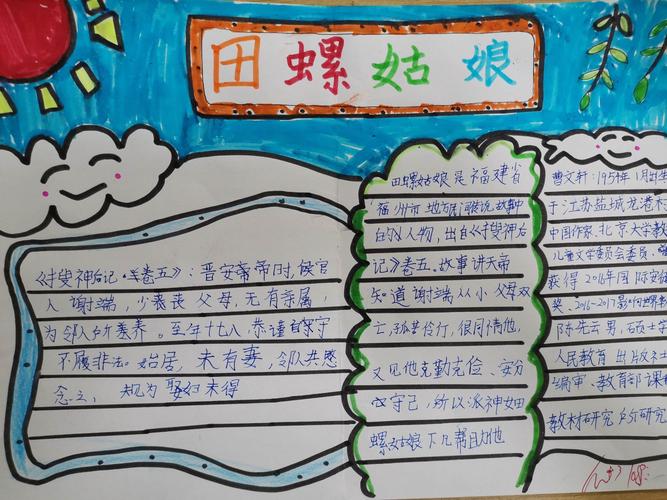 田螺姑娘
《搜神后记·卷五》：晋安帝时，候官
人谢端，少丧父母，无有亲属，
为邻人所养。至年十七八，恭谨自守
不履非法。始居，未有妻，邻人共愍
念之，规为娶妇未得
田螺姑娘是福建省
福州市地方民间传说故事中
的人物，出自《搜神后
记》卷五。故事讲天帝
知道谢端从小父母双
亡，孤苦伶仃，很同情他，
又见他克勤克俭、安分
守己，所以派神女田
螺姑娘下凡帮助他
曹文轩：1954年1月出生
于江苏盐城龙港村
中国作家，北京大学教
儿童文学委员会委员，
获得2016年国际安徒
奖、2016-2017影响世界
陈先云男，硕士
人民教育出版社
编审、教育部课程
教材研究所研究